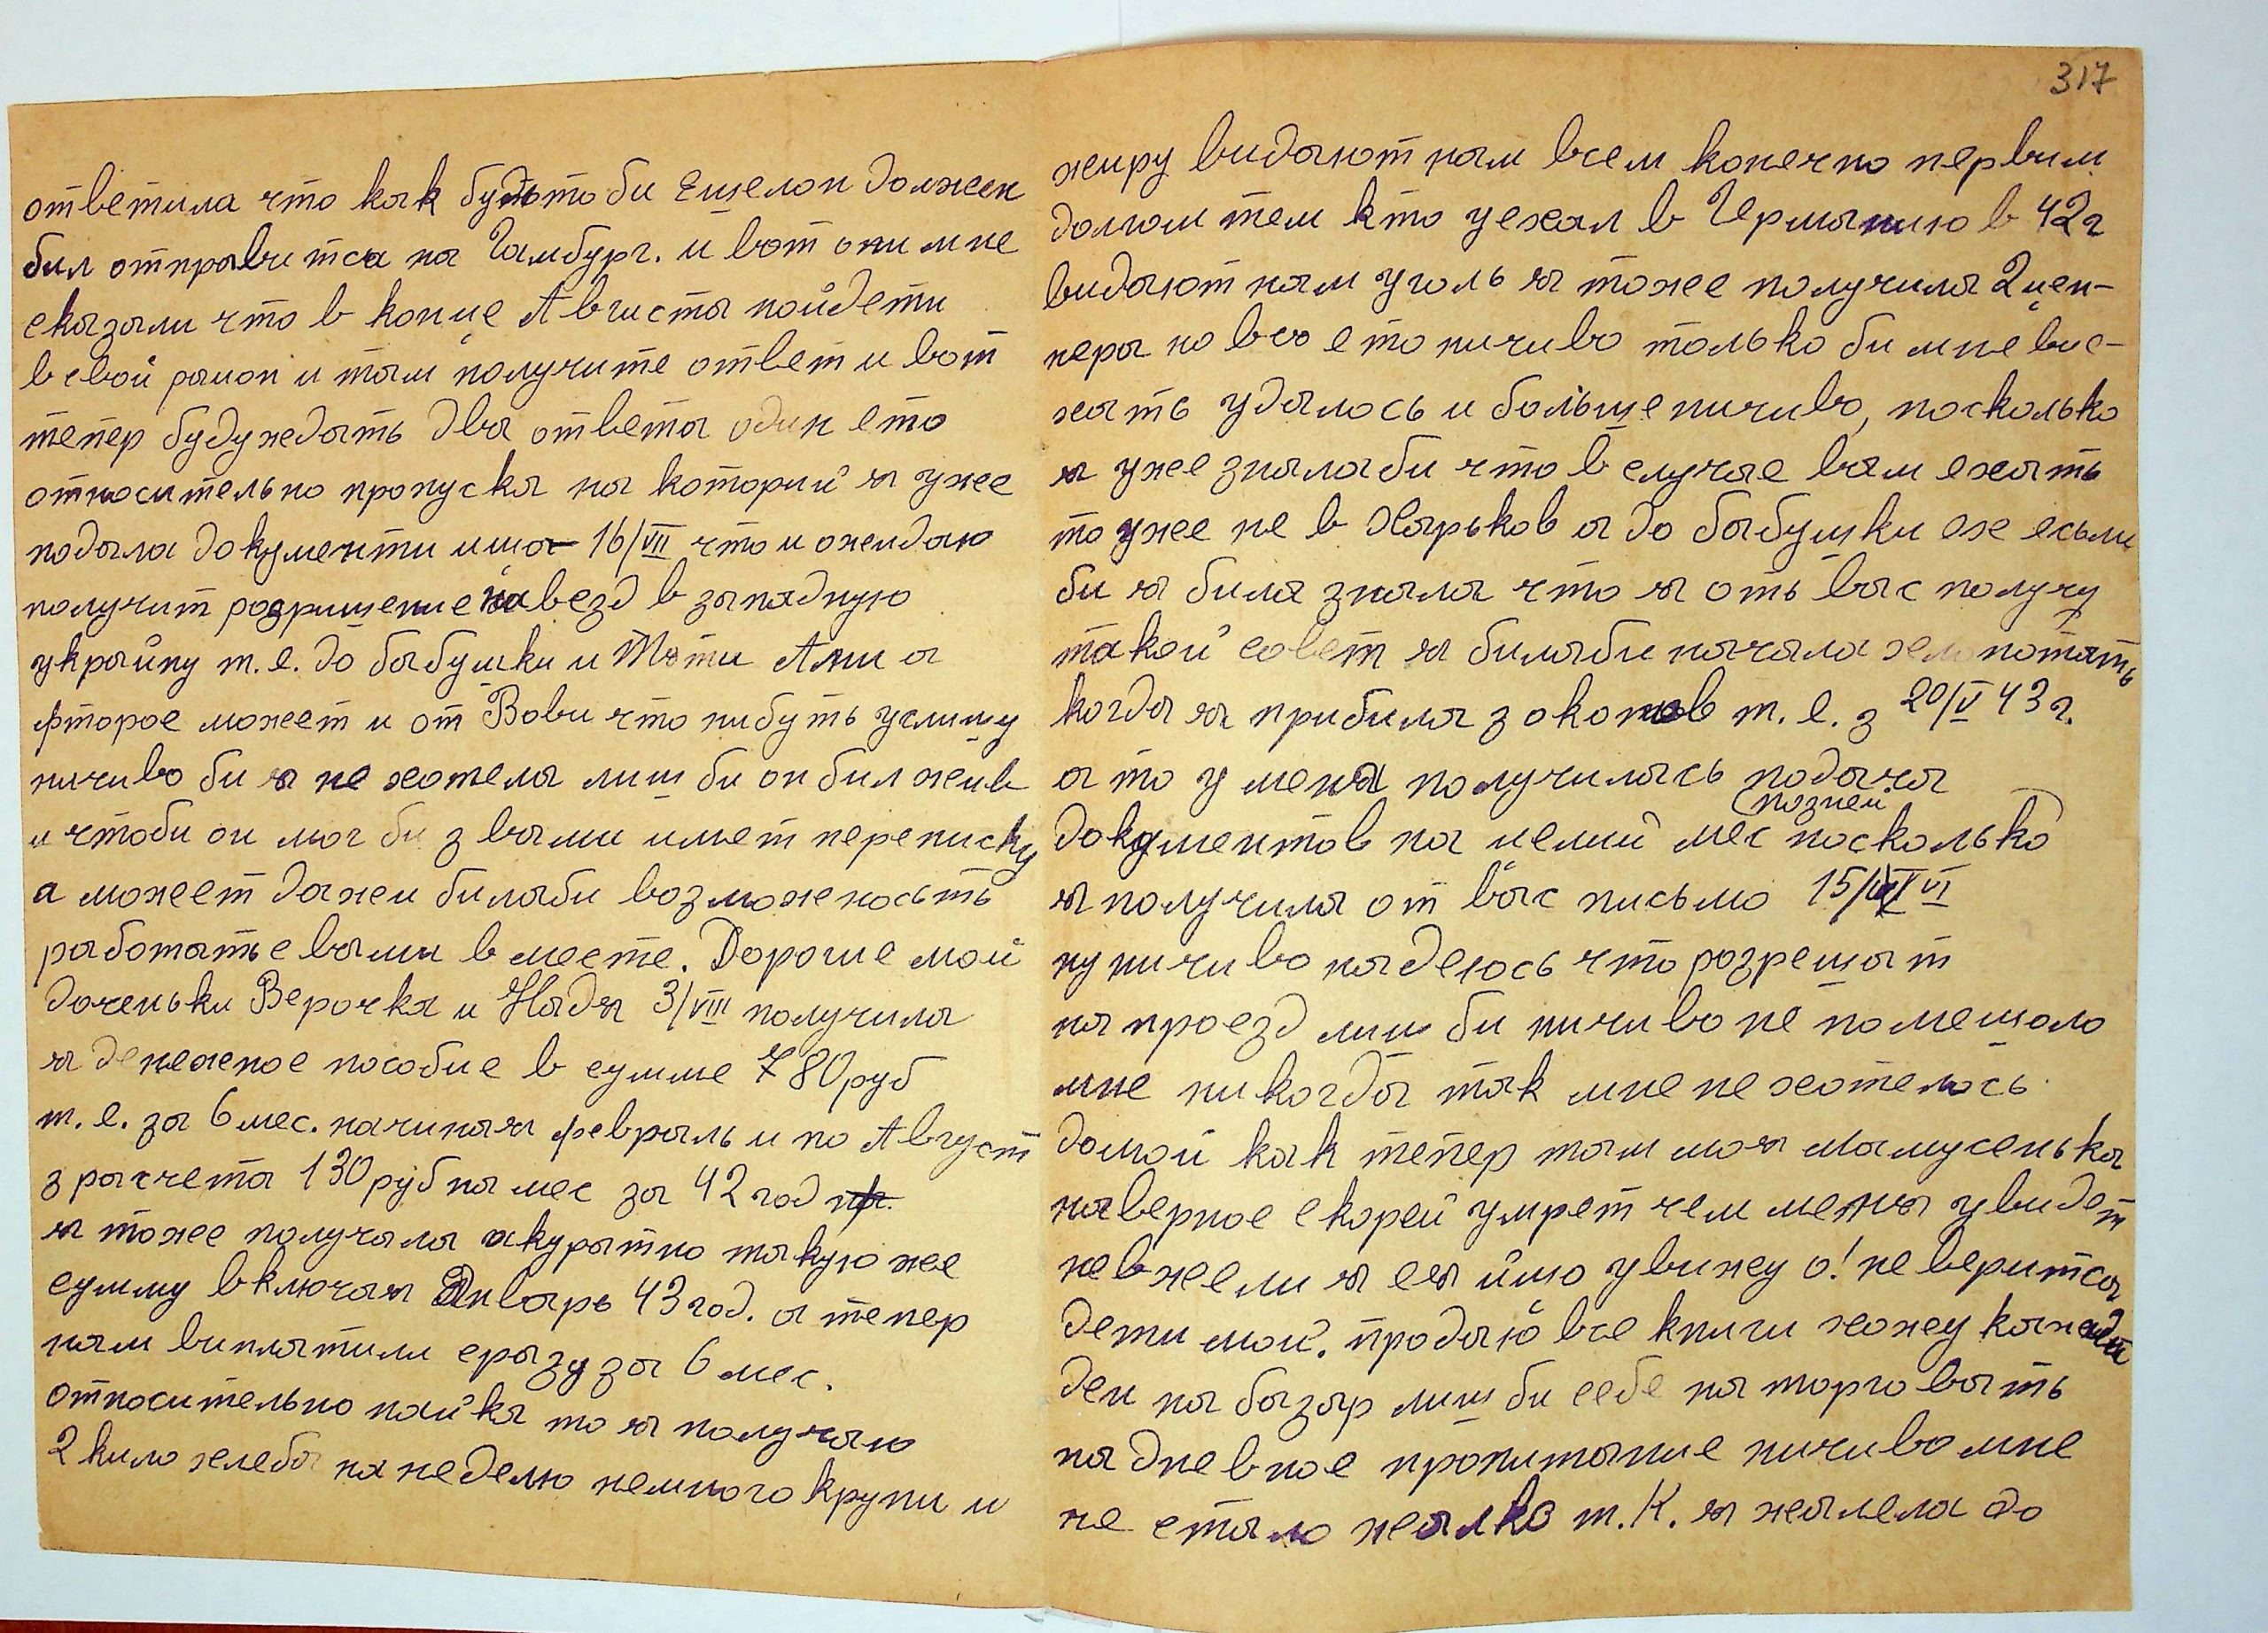 ответила что как будьто би Ешелон должен
бил отправитса на Гамбург. и вот они мне
сказали что в конце Августа пойдети
в свой район и там получите ответ и вот
тепер буду ждать два ответа один ето
относительно пропуска на которий я уже
подала документи ишо 16/VII что и ожидаю
получит розришение на везд в западную
украйну т.е. до бабушки и Тьоти Ани а
фторое может и от Вови что нибуть услишу
ничиво би я не хотела лиш би он бил жив
и чтоби он мог би з вами имет переписку
а может даже и билаби возможеность
работать с вами в месте. Дорогие мои
доченьки Верочка и Надя 3/VIII получила
я денежное пособие в сумме 780 руб
т.е. за 6 мес. начиная февраль и по Август
з расчета 130 руб на мес за 42 год
я тоже получала акуратно такую же
сумму включая Январь 43 год. а тепер
нам виплатили сразу за 6 мес.
относительно пайка то я получаю
2 кило хлеба на неделю немного крупи и
317
жиру видают нам всем конечно первим
долгом тем кто уехал в Германию в 42 г
видают нам уголь я тоже получила 2 цен-
нера но всо ето ничиво только би мне вис-
хать удалось и больше ничиво, посколько
я уже зналаби что в случае вам ехать
то уже не в Харьков а до бабушки ох есьли
би я била знала что я оть вас получу
такой совет я билаби начала хлопотать
когда я прибила з окопов т.е. з 20/V 43 г.
а то у меня получилась подача
позней
документов на целий мес посколько
я получила от вас письмо 15/VI
ну ничиво надеюсь что розрешат
на проезд лиш би ничиво не помешало
мне никогда так мне не хотелось
домой как тепер там моя мамусенька
наверное скорей умрет чем меня увидет
невжели я ея ишо увижу о! не веритса
дети мои. продаю все книги хожу каждий
ден на базар лиш би себе на торговать
на дневное пропитание ничиво мне
не стало жалко т.К. я жалела до